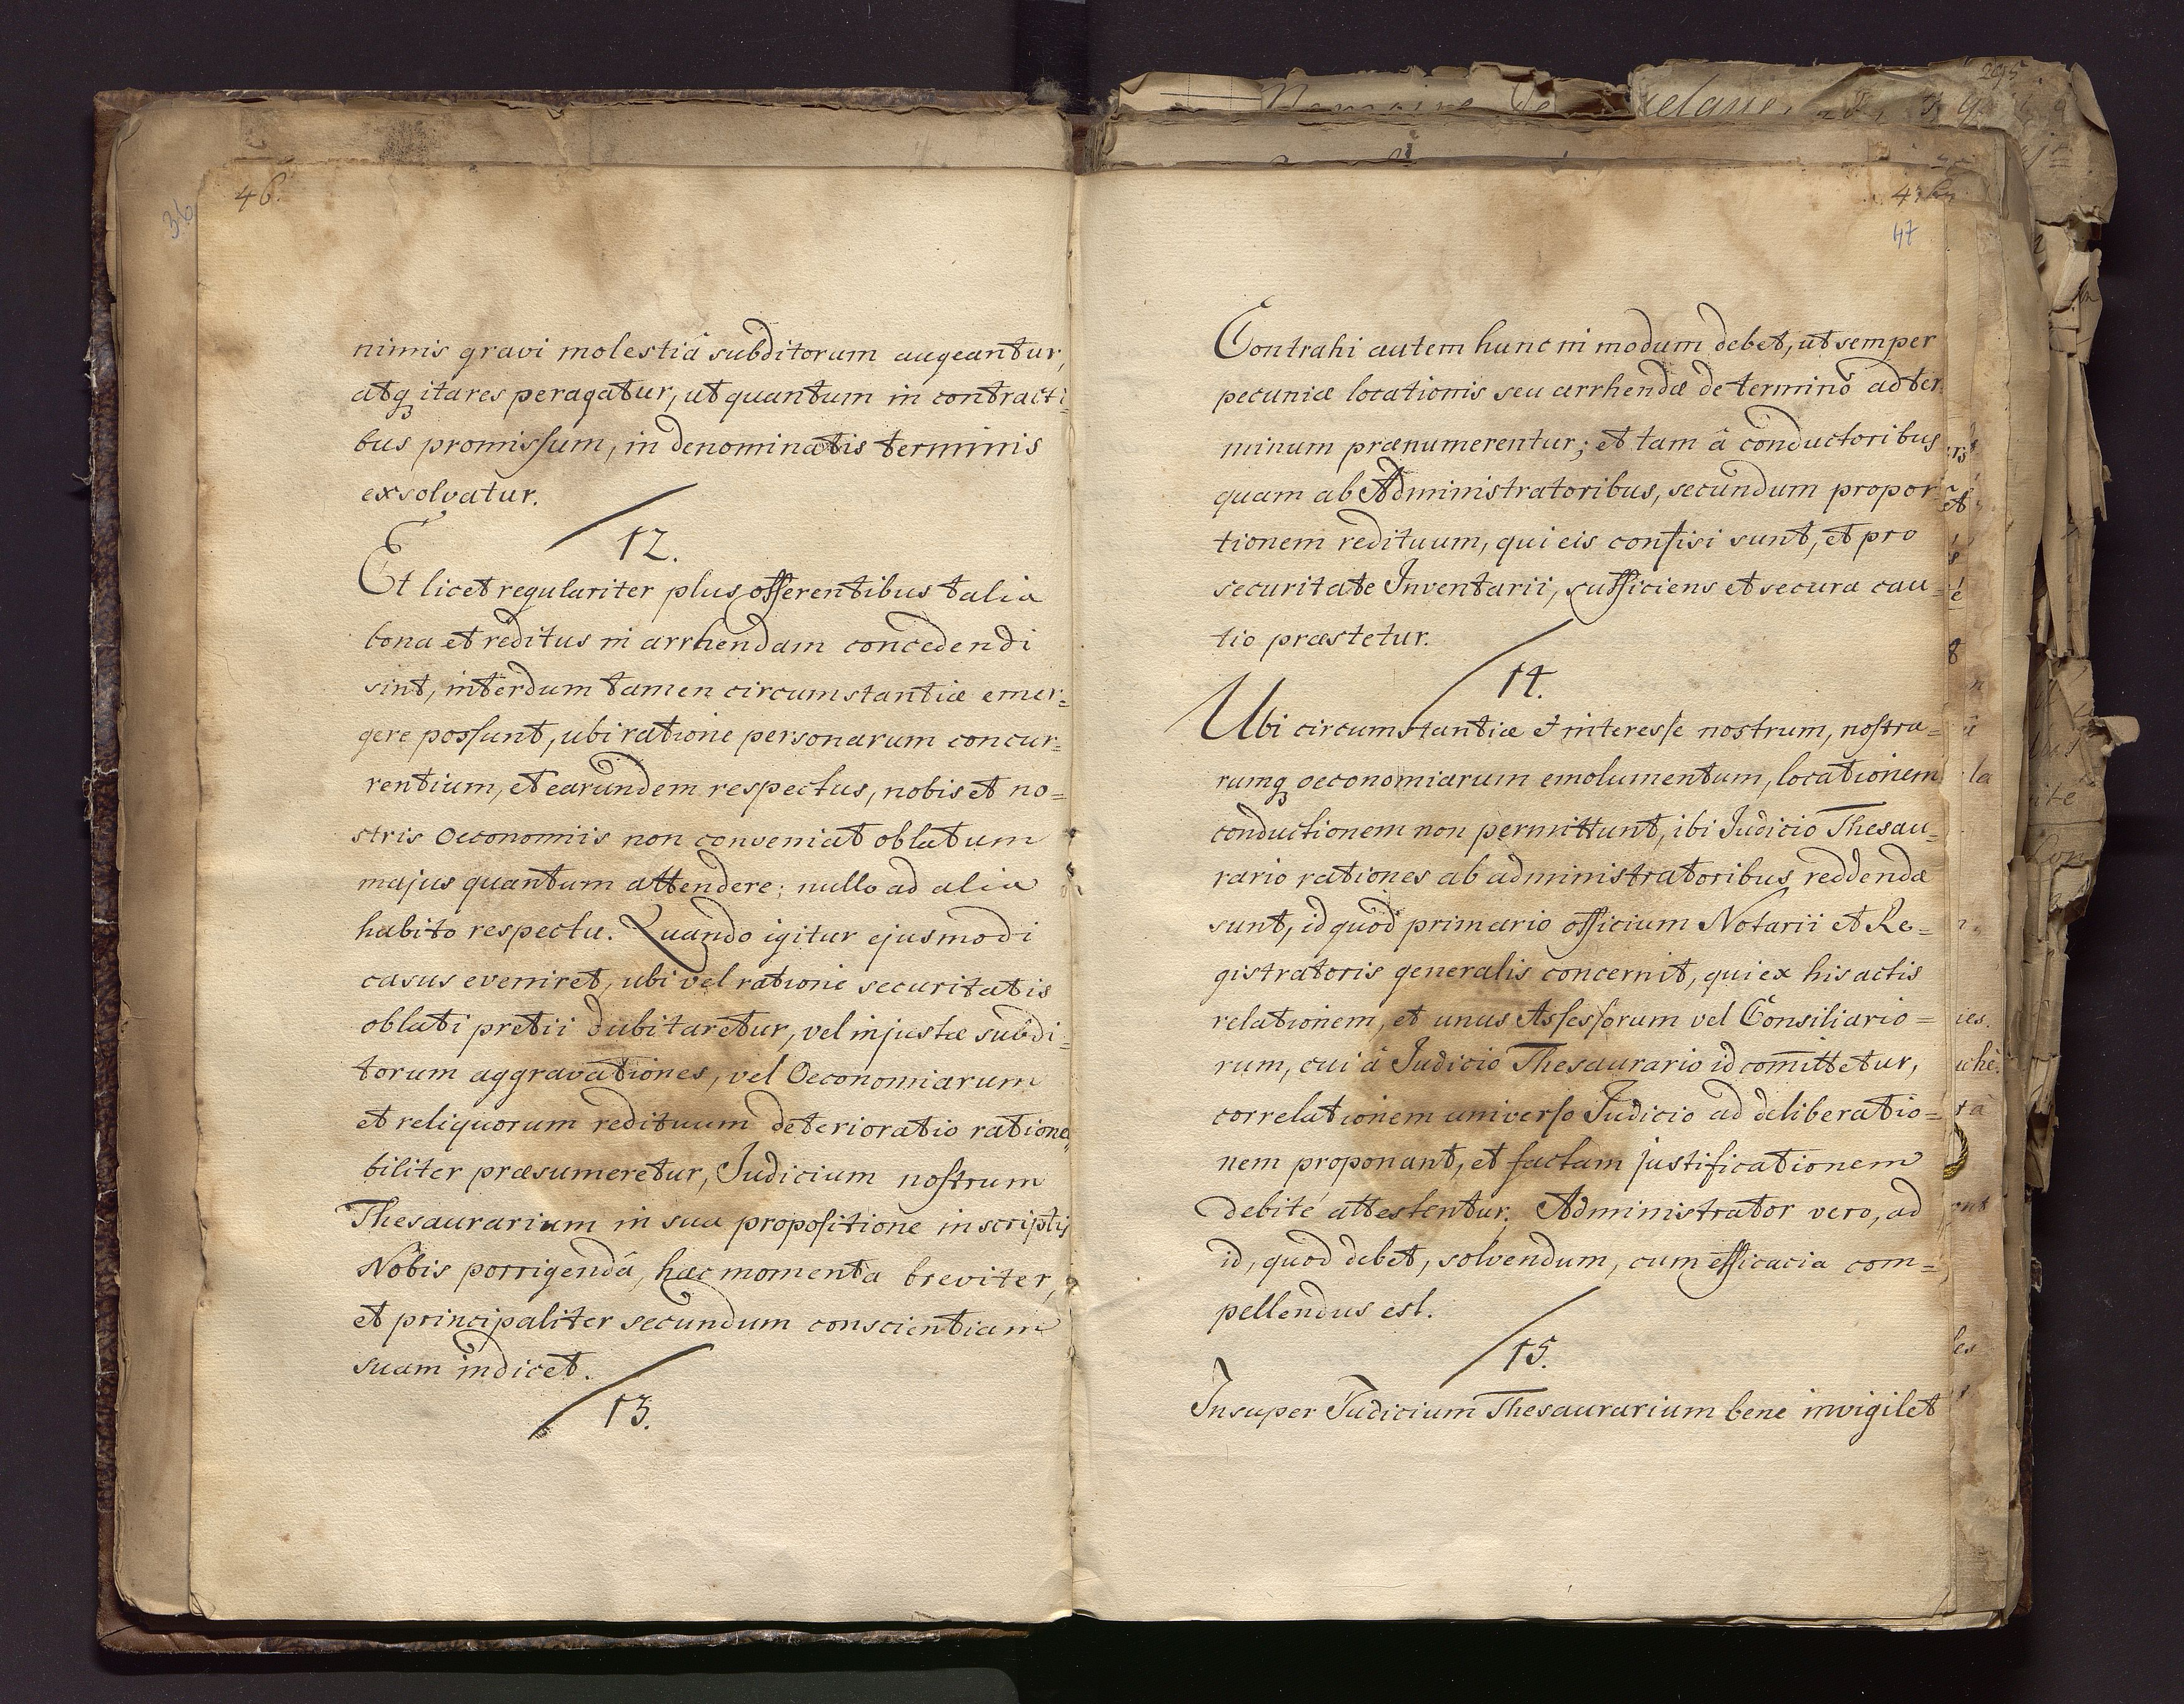 46.
36
nimis gravi molestiâ subditorum augeantur,
atq3 ita res peragatur, ut quantum in contracti=
bus promissum, in denominatis terminis
exsolvatur.
12.
Et licet regulariter plus offerentibus talia
bona et reditus in arrhendam concedendi
sint, interdum tamen circumstantiæ emer=
gere possunt, ubi ratione personarum concur=
rentium, et earundem respectus, nobis et no=
stris Oeconomiis non conveniat oblatum
majus quantum attendere; nullo ad alia
habito respectu. Quando igitur ejusmodi
casus eveniret, ubi vel ratione securitatis
oblati pretii dubitaretur, vel injustæ subdi=
torum aggravationes, vel Oeconomiarum
et reliquorum redituum deterioratio rationa=
biliter præsumeretur, Judicium nostrum
Thesaurarium in sua propositione in scriptis
Nobis porrigendâ, hæc momenta breviter,
et principaliter secundum conscientiam
suam indicet.
13.
47
Contrahi autem hunc in modum debet, ut semper
pecuniæ locationis seu arrhendæ de termino ad ter
minum prænumerentur; et tam â conductoribus
quam ab Administratoribus, secundum propor
tionem redituum, qui eis confisi sunt, et pro
securitate Inventarii, sufficiens et secura cau=
tio præstetur.
14.
Ubi circumstantiæ et interesse nostrum, nostra=
rumq3 oeconomiarum emolumentum, locationem
conductionem non permittunt, ibi Judicio Thesau=
rario rationes ab administratoribus reddendæ
sunt, id quod primario officium Notarii et Re=
gistratoris generalis concernit, qui ex his actis
relationem, et unus Assessorum vel Consiliario=
rum, cui â Judicio Thesaurario id com̄ittetur,
correlationem universo Judicio ad deliberatio=
nem proponant, et factam justificationem
debité attestentur. Administrator vero, ad
id, quod debet, solvendum, cum efficacia com=
pellendus est.
15.
Insuper Judicium Thesaurarium bene invigilet